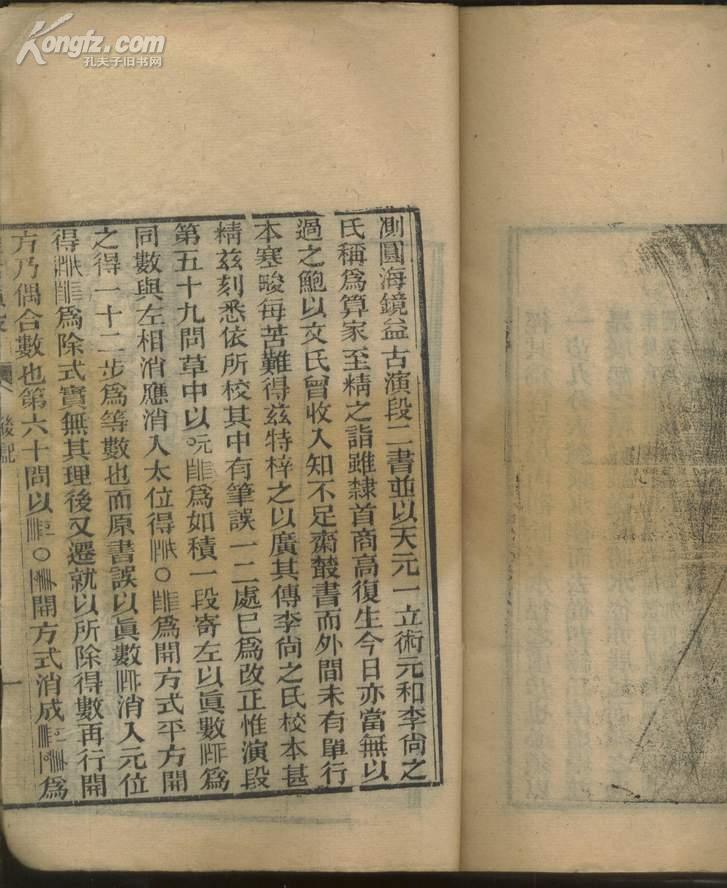 Kongfz.com
孔夫子旧书网
測圓海鏡益古演段二書並以天元一立術元和李尙之
氏稱爲算家至精之詣雖隸首商高復生今日亦當無以
過之鮑以文氏曾收入知不足齋叢書而外間未有單行
本寒畯每苦難得兹特梓之以廣其傳李尙之氏校本甚
精兹刻悉依所校其中有筆誤一二處已爲改正惟演段
第五十九問草中以元爲如積一段寄左以眞數爲
同數與左相消應消入太位得〇爲開方式平方開
之得一十二步爲等數也而原書誤以眞數消入元位
得爲除式實無其理後又遷就以所除得數再行開
方乃偶合數也第六十問以〇開方式消成爲
後記
一